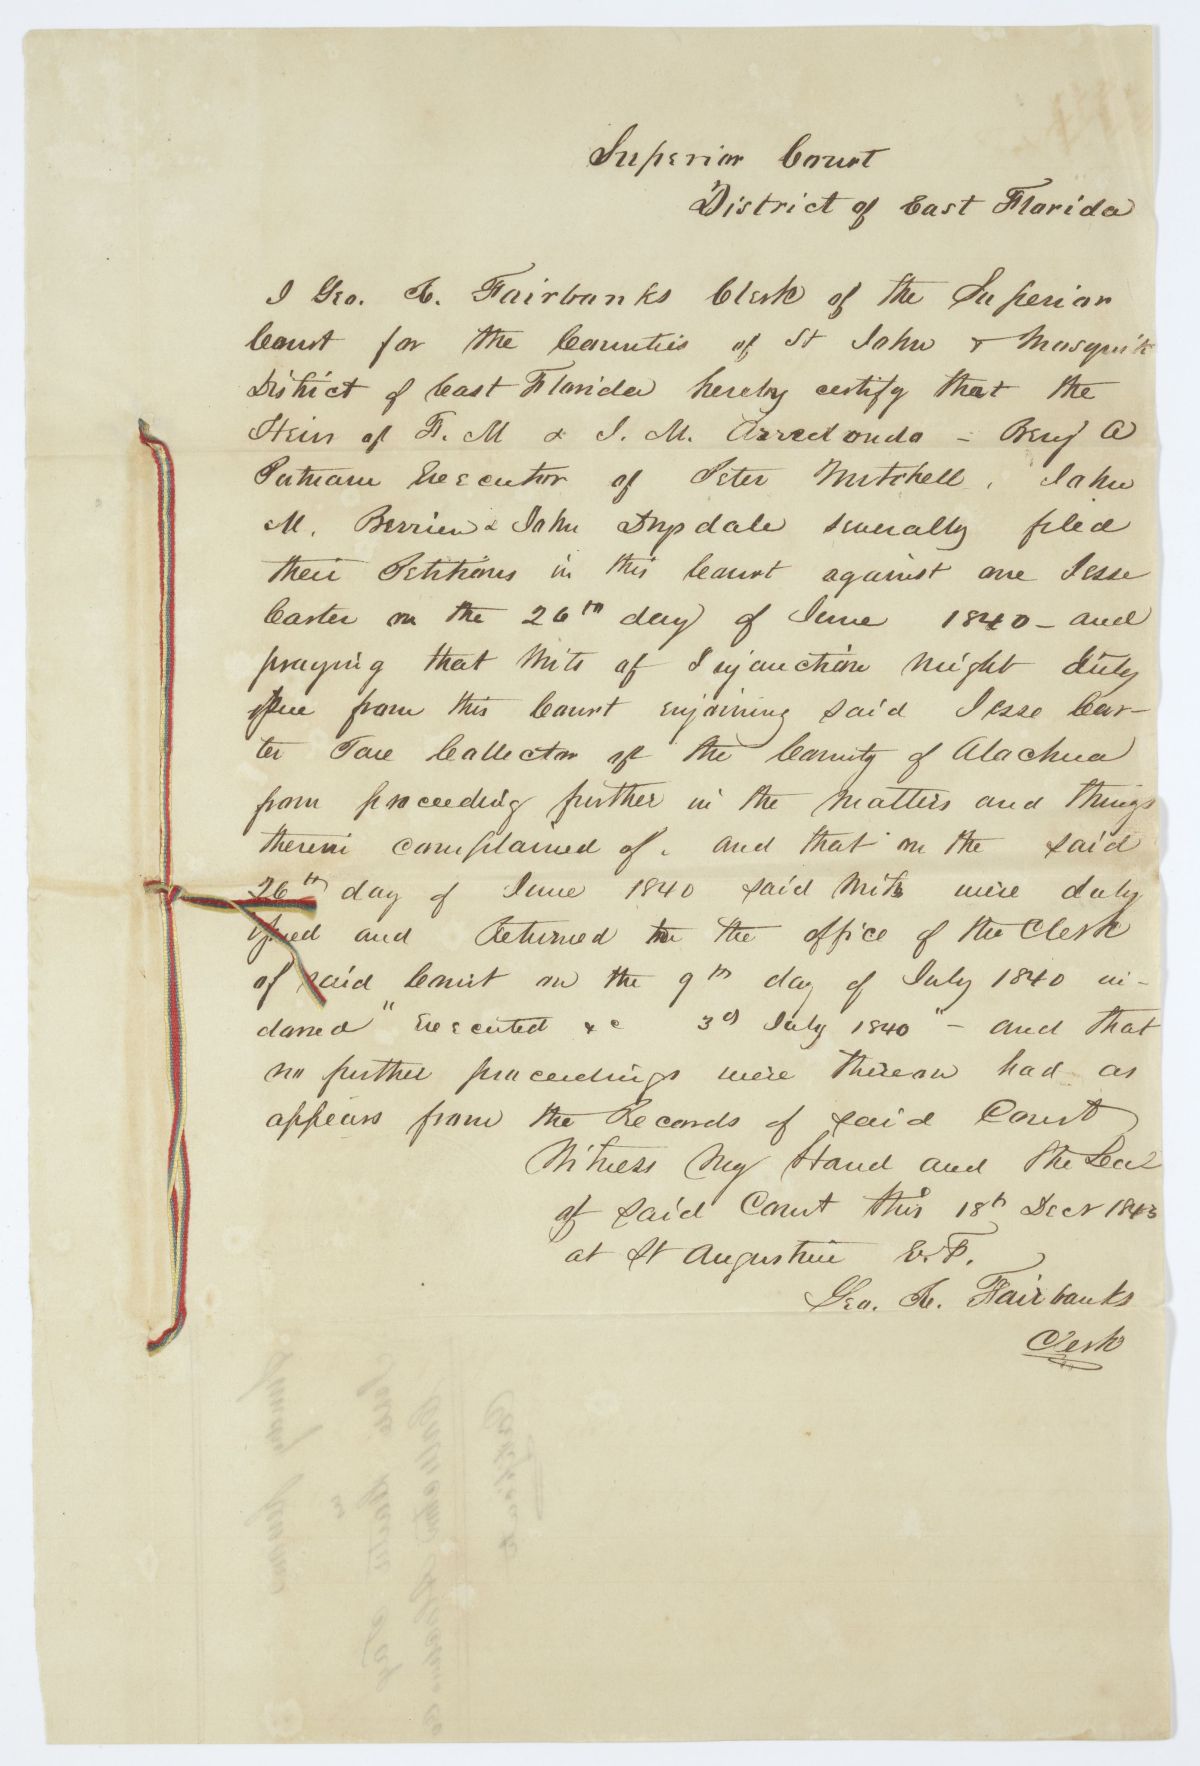 Superior Court
District of East Florida
I Geo. R. Fairbanks Clerk of the Superior
Court for the Counties of St John & Mosquit
District of East Florida hereby certify that the
Heirs of F. M & J. M. Arredondo - Benj A
Putnam Executor of Peter Mitchell, John
M. Berrien & John Drysdale severally filed
their Petitions in this Court against one Jesse
Carter on the 26th day of June 1840 - and
praying that Writs of Injunction might duly
issue from this Court enjoining said Jesse Car-
ter Tax Collector of the County of Alachua
from proceeding further in the matters and things
therein complained of, and that on the said
26th day of June 1840 said Writs were duly
issued and Returned to the office of the Clerk
of said Court on the 9th day of July 1840 in-
dorsed "Executed &c 3d July 1840" - and that
no further proceedings were thereon had as
appears from the Records of said Court
Witness my Hand and the Seal
of said Court this 18th Decr 1843
at St Augustine E.F.
Geo. R. Fairbanks
Clerk